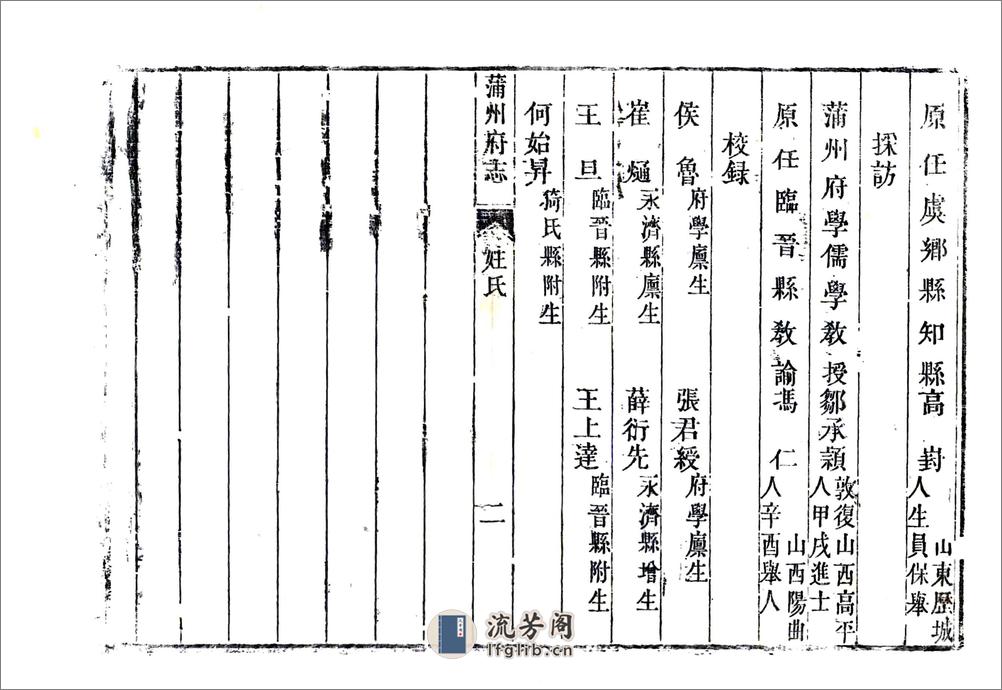 原任虞鄉縣知縣高　封山東歷城人生員保舉
採訪
蒲州府學儒學敎授鄒承頴敦復山西高平人甲戌進士
原任臨晉縣敎諭馮　仁山西陽曲人辛酉舉人
校録
侯　魯府學廩生　張君綬府學廩生
崔　㷆永濟縣廩生　薛衍先永濟縣增生
王　旦臨晉縣附生　王上達臨晉縣附生
何始昇猗氏縣附生
蒲州府志　姓氏　二
流芳阁
lfglib.cn